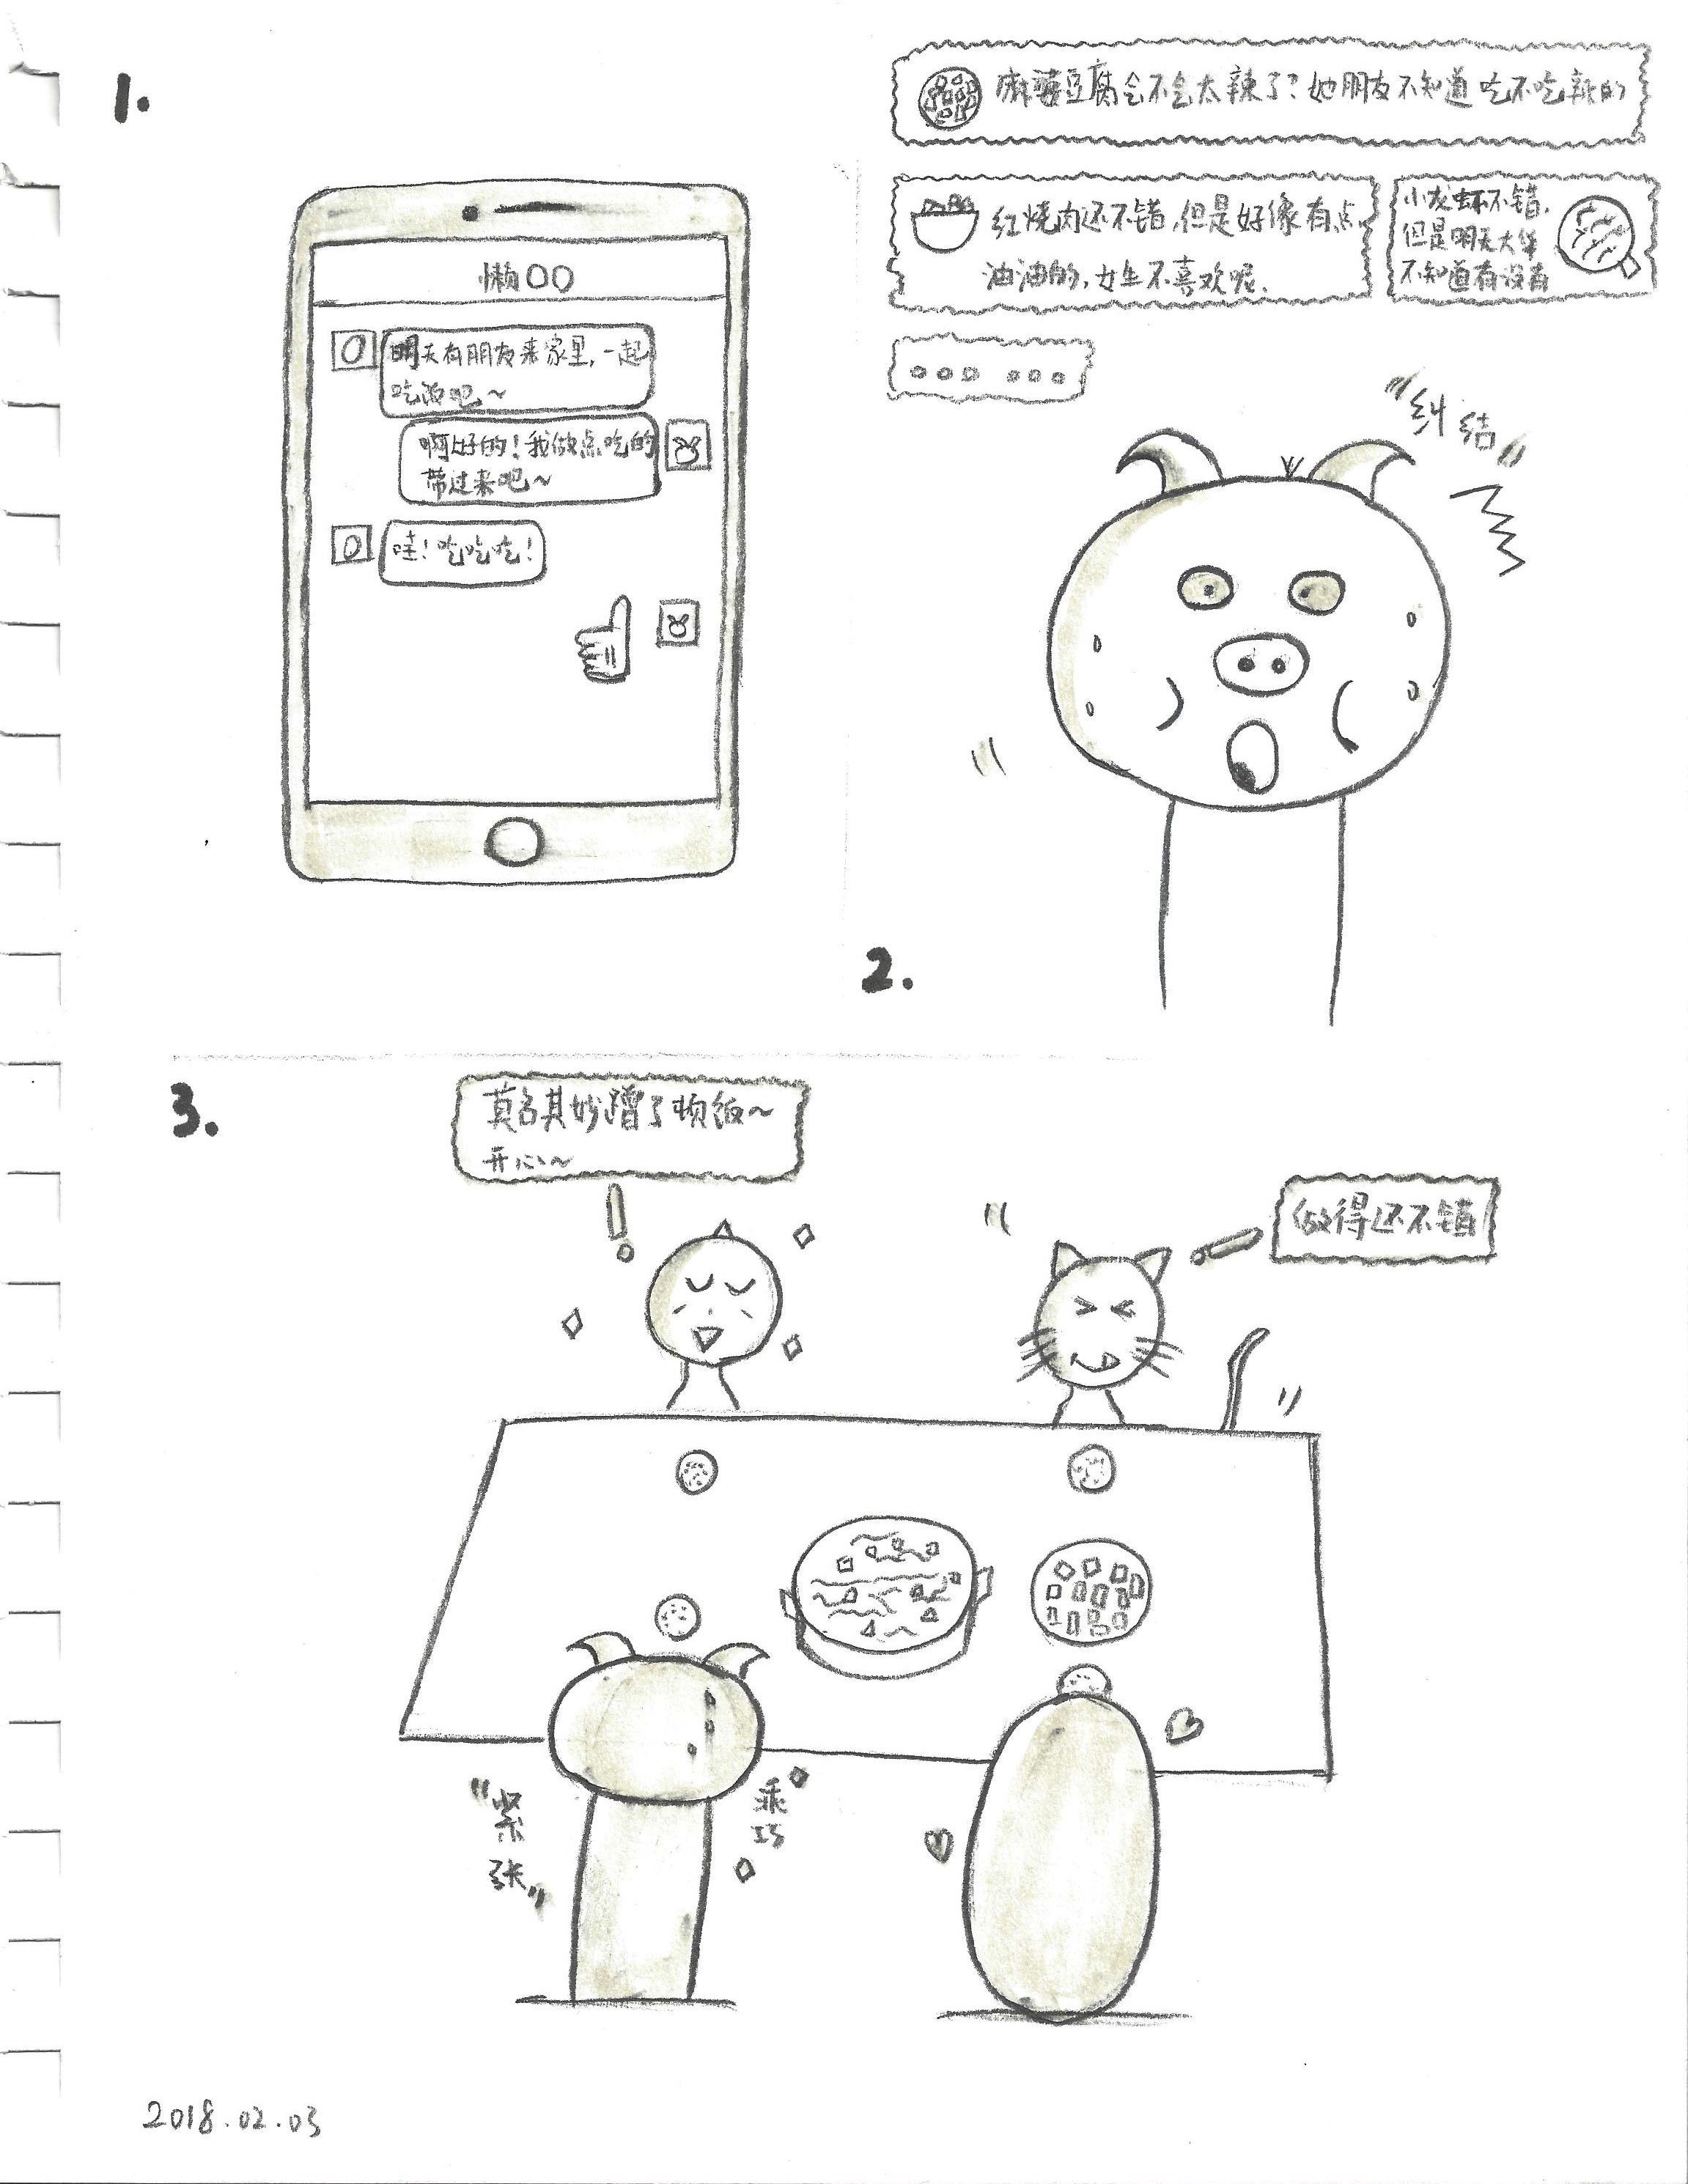 1.
懒OO
明天有朋友来家里,一起
吃饭吧~
啊好的!我做点吃的
带过来吧~
哇!吃吃吃!
2.
麻婆豆腐会不会太辣了?她朋友不知道吃不吃辣的
红烧肉还不错,但是好像有点
油油的,女生不喜欢呢.
小龙虾不错,
但是明天大华
不知道有没有
。。。 。。。
"纠结"
3.
莫名其妙蹭了顿饭~
开心~
做得还不错
"紧张"
乖巧
2018.02.03